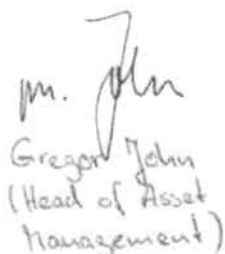 m. John
Gregor John
(Head of Asset
Management)